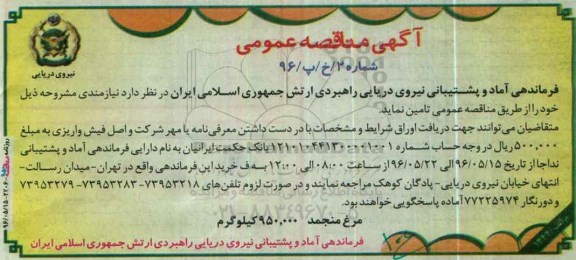 آگهی مناقصه عمومی
شماره ۲/خ/پ/۹۶
نیروی دریایی
فرماندهی آماد و پشتیبانی نیروی دریایی راهبردی ارتش جمهوری اسلامی ایران در نظر دارد نیازمندی مشروحه ذیل
خود را از طریق مناقصه عمومی تامین نماید.
متقاضیان می‌توانند جهت دریافت اوراق شرایط و مشخصات با در دست داشتن معرفی‌نامه با مهر شرکت و اصل فیش واریزی به مبلغ
۵۰۰,۰۰۰ ریال در وجه حساب شماره بانک حکمت ایرانیان به نام دارایی فرماندهی آماد و پشتیبانی
نداجا از تاریخ ۹۶/۰۵/۱۵ الی ۹۶/۰۵/۲۲ از ساعت ۰۸:۰۰ الی ۱۲:۰۰ به ف خرید این فرماندهی واقع در تهران-میدان رسالت-
انتهای خیابان نیروی دریایی- پادگان کوهک مراجعه نمایند و در صورت لزوم تلفن‌های ۷۳۹۵۳۲۱۸-۷۳۹۵۳۲۸۳-۷۳۹۵۳۲۷۹
و دورنگار ۷۷۲۲۵۹۷۴ آماده پاسخگویی خواهند بود.
مرغ منجمد ۹۵۰,۰۰۰ کیلوگرم
فرماندهی آماد و پشتیبانی نیروی دریایی راهبردی ارتش جمهوری اسلامی ایران